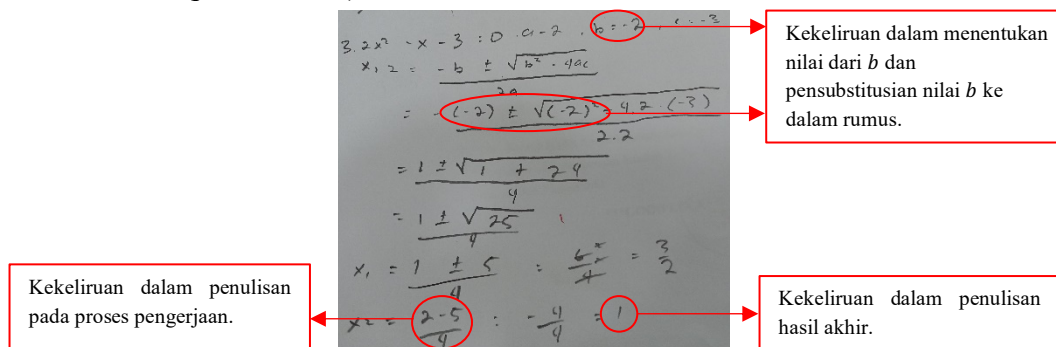 3. 2x² - x - 3 : 0 . a - 2 , b = -2 , c : -3
x₁ 2 = -b ± √b² - 4ac
2a
= -(-2) ± √(-2)² - 4 2 . (-3)
2.2
= 1 ± √1 + 24
4
= 1 ± √25
4
x₁ = 1 ± 5 : 6 = 3
4 4 2
x2 = 2 - 5 : - 4 = 1
4 4
Kekeliruan dalam menentukan
nilai dari b dan
pensubstitusian nilai b ke
dalam rumus.
Kekeliruan dalam penulisan
pada proses pengerjaan.
Kekeliruan dalam penulisan
hasil akhir.